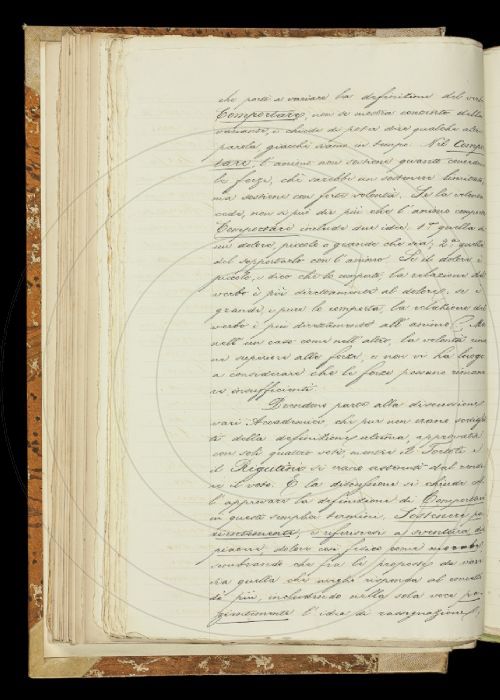 che portò a variare la definizione del verbo
Comportare, non si mostra convinto della
variante, e chiede di poter dire qualche altra
parola giacchè siamo in tempo. Nel Compor
tare l'animo non sostiene quanto consentono
le forze, chè sarebbe un sostenere limitato,
ma sostiene con forte volontà. Se la volontà
cede, non si può dir più che l'animo comporta.
Comportare include due idee: 1ª quella di
un dolore, piccolo o grande che sia; 2ª quella
del sopportarlo con l'animo. Se il dolore è
piccolo, e dico che lo comporto, la relazione del
verbo è più direttamente al dolore; se è
grande, e pure lo comporto, la relazione del
verbo è più direttamente all'animo. Ma
nell'un caso come nell'altro, la volontà rima
ne superiore alla forza, e non vi ha luogo
a considerare che le forze possano rimane
re insufficienti.
Prendono parte alla discussione
vari Accademici, che pur non erano soddisfat
ti della definizione ultima, approvata
con soli quattro voti, mentre il Tortoli e
il Rigutini si erano astenuti dal rende
re il voto. E la discussione si chiude col
l'approvare la definizione di Comportare
in questi semplici termini. Sostenere pa
zientemente, e riferiscesi a sventura, dis
piacere, dolore così fisico come morale;
sembrando che fra le proposte da vari
sia quella che meglio risponda al concetto
di più, includendo nella sola voce pa
zientemente l'idea di rassegnazione,